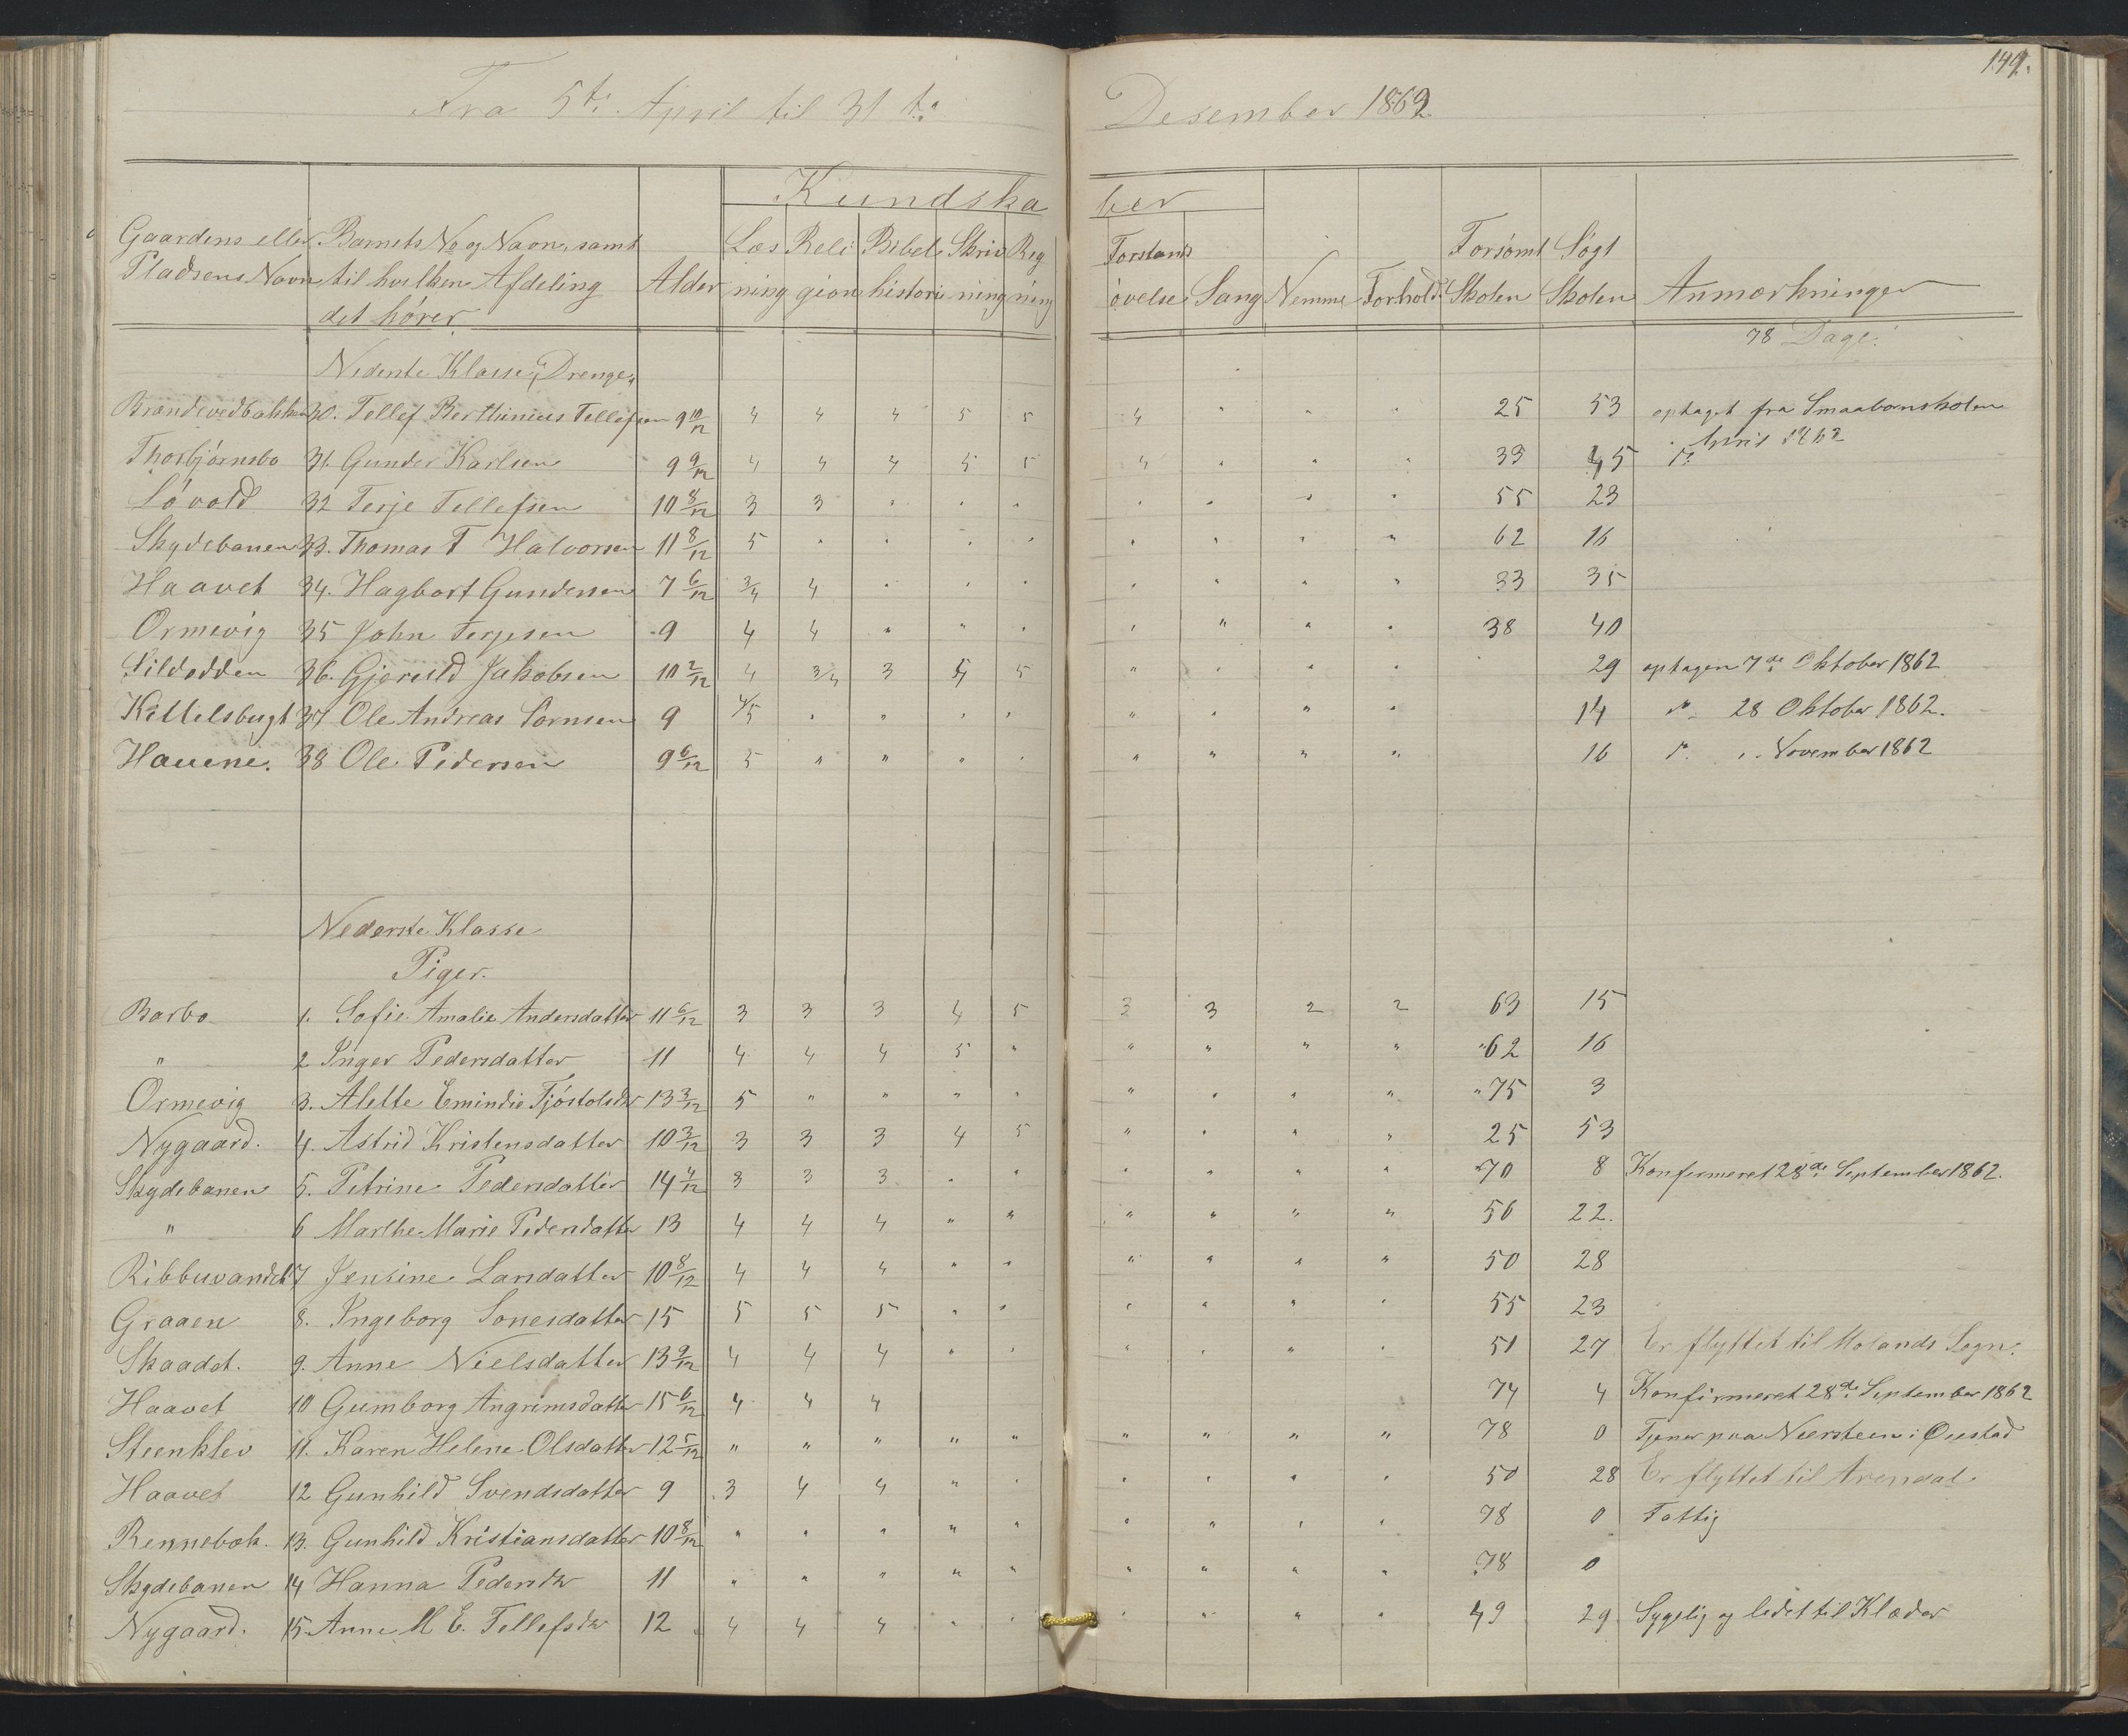 149.
Fra 5te April til 31te Desember 1862.
Kundskaber
Gaardens eller Pladsens Navn | Barnets No og Navn, samt til hvilken Afdeling det hører | Alder | Læsning | Religion | Bibelhistorie | Skrivning | Regning | Forstandsøvelse | Sang | Nemme | Forhold | Forsømt Skolen | Søgt Skolen | Anmærkninger
78 Dage.
Nederste Klasse, Drenge.
Brændevedbakken 30. Tellef Berthinius Tellefsen 9 10/12 4 4 4 5 5 4 " " " 25 53 optaget fra Smaabørnskolen
April 1862
Thorbjørnsbo 31. Gunder Karlsen 9 9/12 4 4 4 5 5 4 " " " 33 45 do
Løvold 32 Terje Tellefsen 10 8/12 3 3 " " " " " " " 55 23
Skydebanen 33. Thomas T Halvorsen 11 8/12 5 " " " " " " " " 62 16
Haavet 34. Hagbart Gundersen 7 6/12 3/4 4 " " " " " " 33 35
Ormevig 35 John Terjesen 9 4 4 " " " " " " " 38 40
Sildodden 36. Gjeruld Jakobsen 10 2/12 4 3/4 3 5 5 " " " " 29 optagen 7de Oktober 1862
Kittelsbugt 37 Ole Andreas Sørnsen 9 4/5 " " " " " " " " 14 do 28 Oktober 1862.
Hauene. 38 Ole Pedersen 9 6/12 5 " " " " " " " " 16 do " November 1862
Nederste Klasse
Piger.
Barbo 1. Sofie Amalie Andersdatter 11 6/12 3 3 3 4 5 3 3 2 2 63 15
" 2 Inger Pedersdatter 11 4 4 4 5 " " " " " 62 16
Ormevig 3. Alette Emindie Fjøstolsdtr 13 3/12 5 " " " " " " " " 75 3
Nygaard. 4. Astrid Kristensdatter 10 3/12 3 3 3 4 5 " " " " 25 53
Skydebanen 5. Petrine Pedersdatter 14 4/12 3 3 3 " " " " " " 70 8 Konfirmeret 28de September 1862.
" 6 Marthe Marie Pedersdatter 13 4 4 4 " " " " " " 56 22.
Ribbuvandet 7 Jensine Larsdatter 10 8/12 4 4 4 " " " " " " 50 28
Graaen 8. Ingeborg Sonesdatter 15 5 5 5 " " " " " " 55 23
Skaadet. 9. Anne Nielsdatter 13 9/12 4 4 4 " " " " " " 51 27 Er flyttet til Molands Sogn.
Haavet 10 Gumborg Angrimsdatter 15 6/12 4 4 4 74 4 Konfirmeret 28de September 1862
Steenklev 11. Karen Helene Olsdatter 12 5/12 " " " " " " " " " 78 0 Tjener paa Neersteen i Øiestad
Haavet 12 Gunhild Svendsdatter 9 3 4 4 " " " " " " 50 28 Er flyttet til Arendal
Rennebæk. 13. Gunhild Kristiansdatter 10 8/12 " " " " " " " " " 78 0 Fattig
Skydebanen 14 Hanna Pedersdtr 11 " " " " " " " " " 78 0
Nygaard. 15. Anne M E. Tellefsdtr 12 4 4 4 " " " " " " 49 29 Sygelig og ledet til Klæder